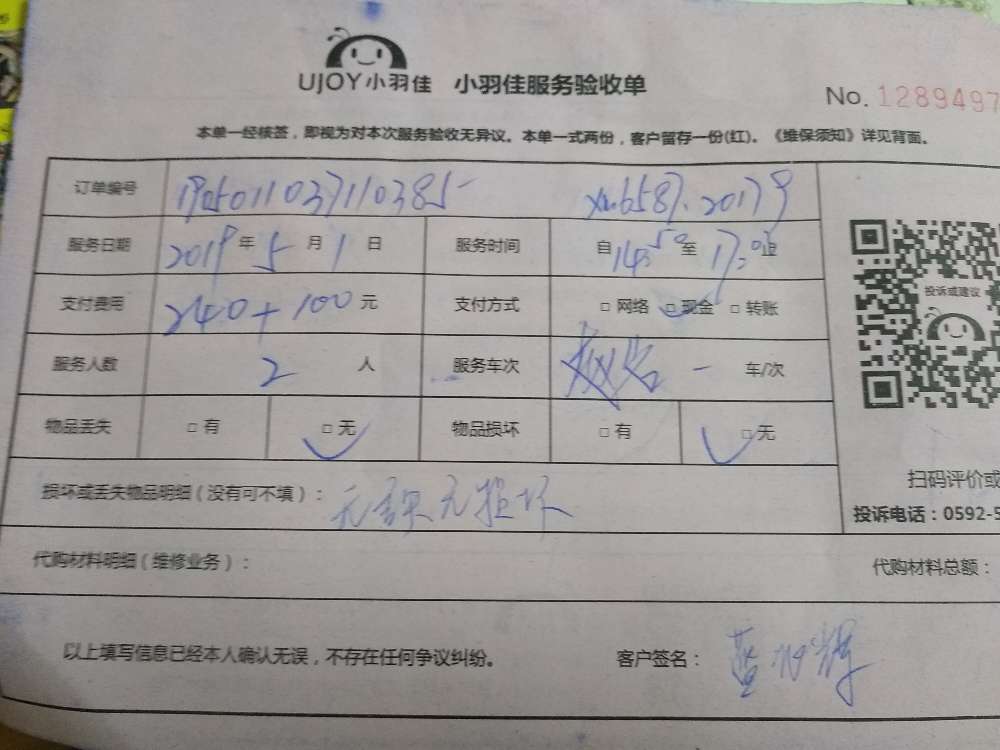 UJOY小羽佳 小羽佳服务验收单
No. 1289497
本单一经核签，即视为对本次服务验收无异议。本单一式两份，客户留存一份(红)。《维保须知》详见背面。
订单编号 1905011037110385
服务日期 2019年5月1日 服务时间 自14:50至17:00止
支付费用 240+100元 支付方式 □网络 □现金 □转账
服务人数 2人 服务车次 一 车/次
物品丢失 □有 □无 物品损坏 □有 □无
投诉或建议
扫码评价或
投诉电话：0592-5
损坏或丢失物品明细（没有可不填）： 无 无损坏
代购材料明细（维修业务）： 代购材料总额：
以上填写信息已经本人确认无误，不存在任何争议纠纷。 客户签名：